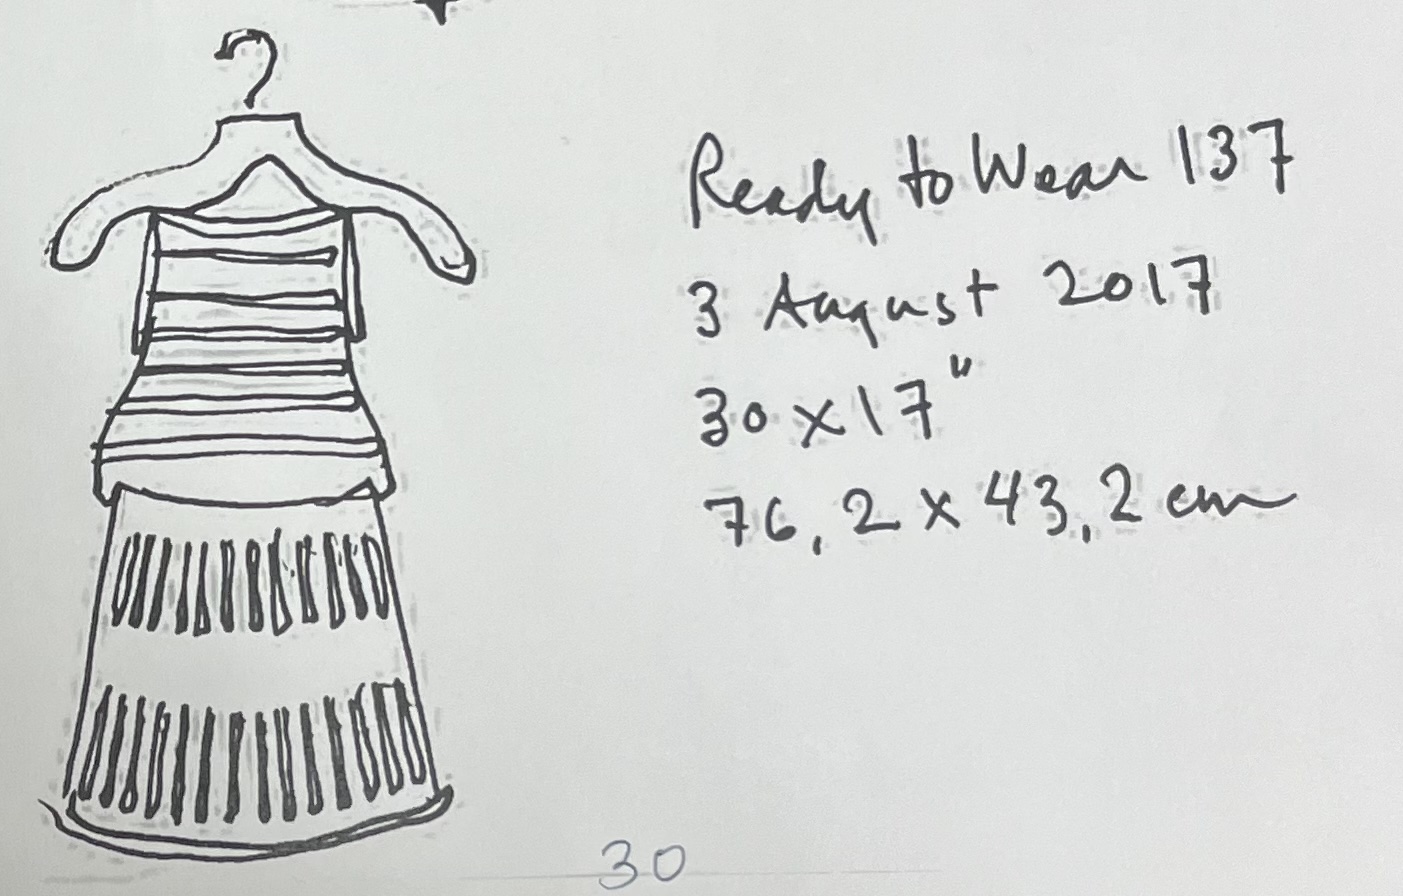 Ready to Wear 137
3 August 2017
30 x 17"
76,2 x 43,2 cm
30